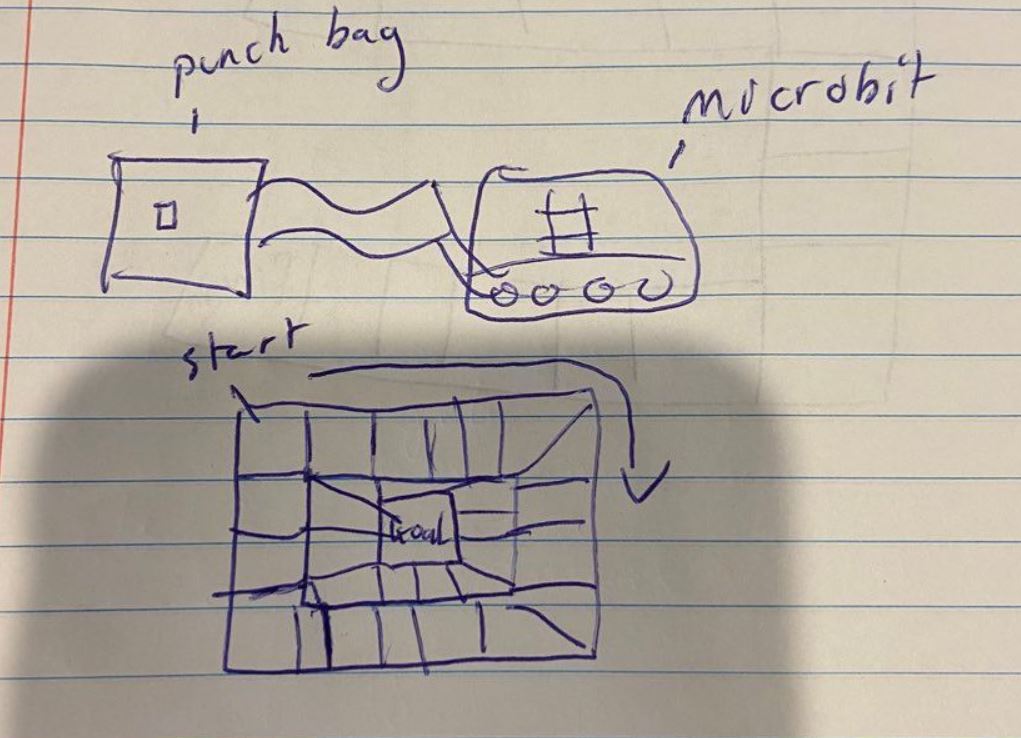 punch bag
microbit
start
Goal